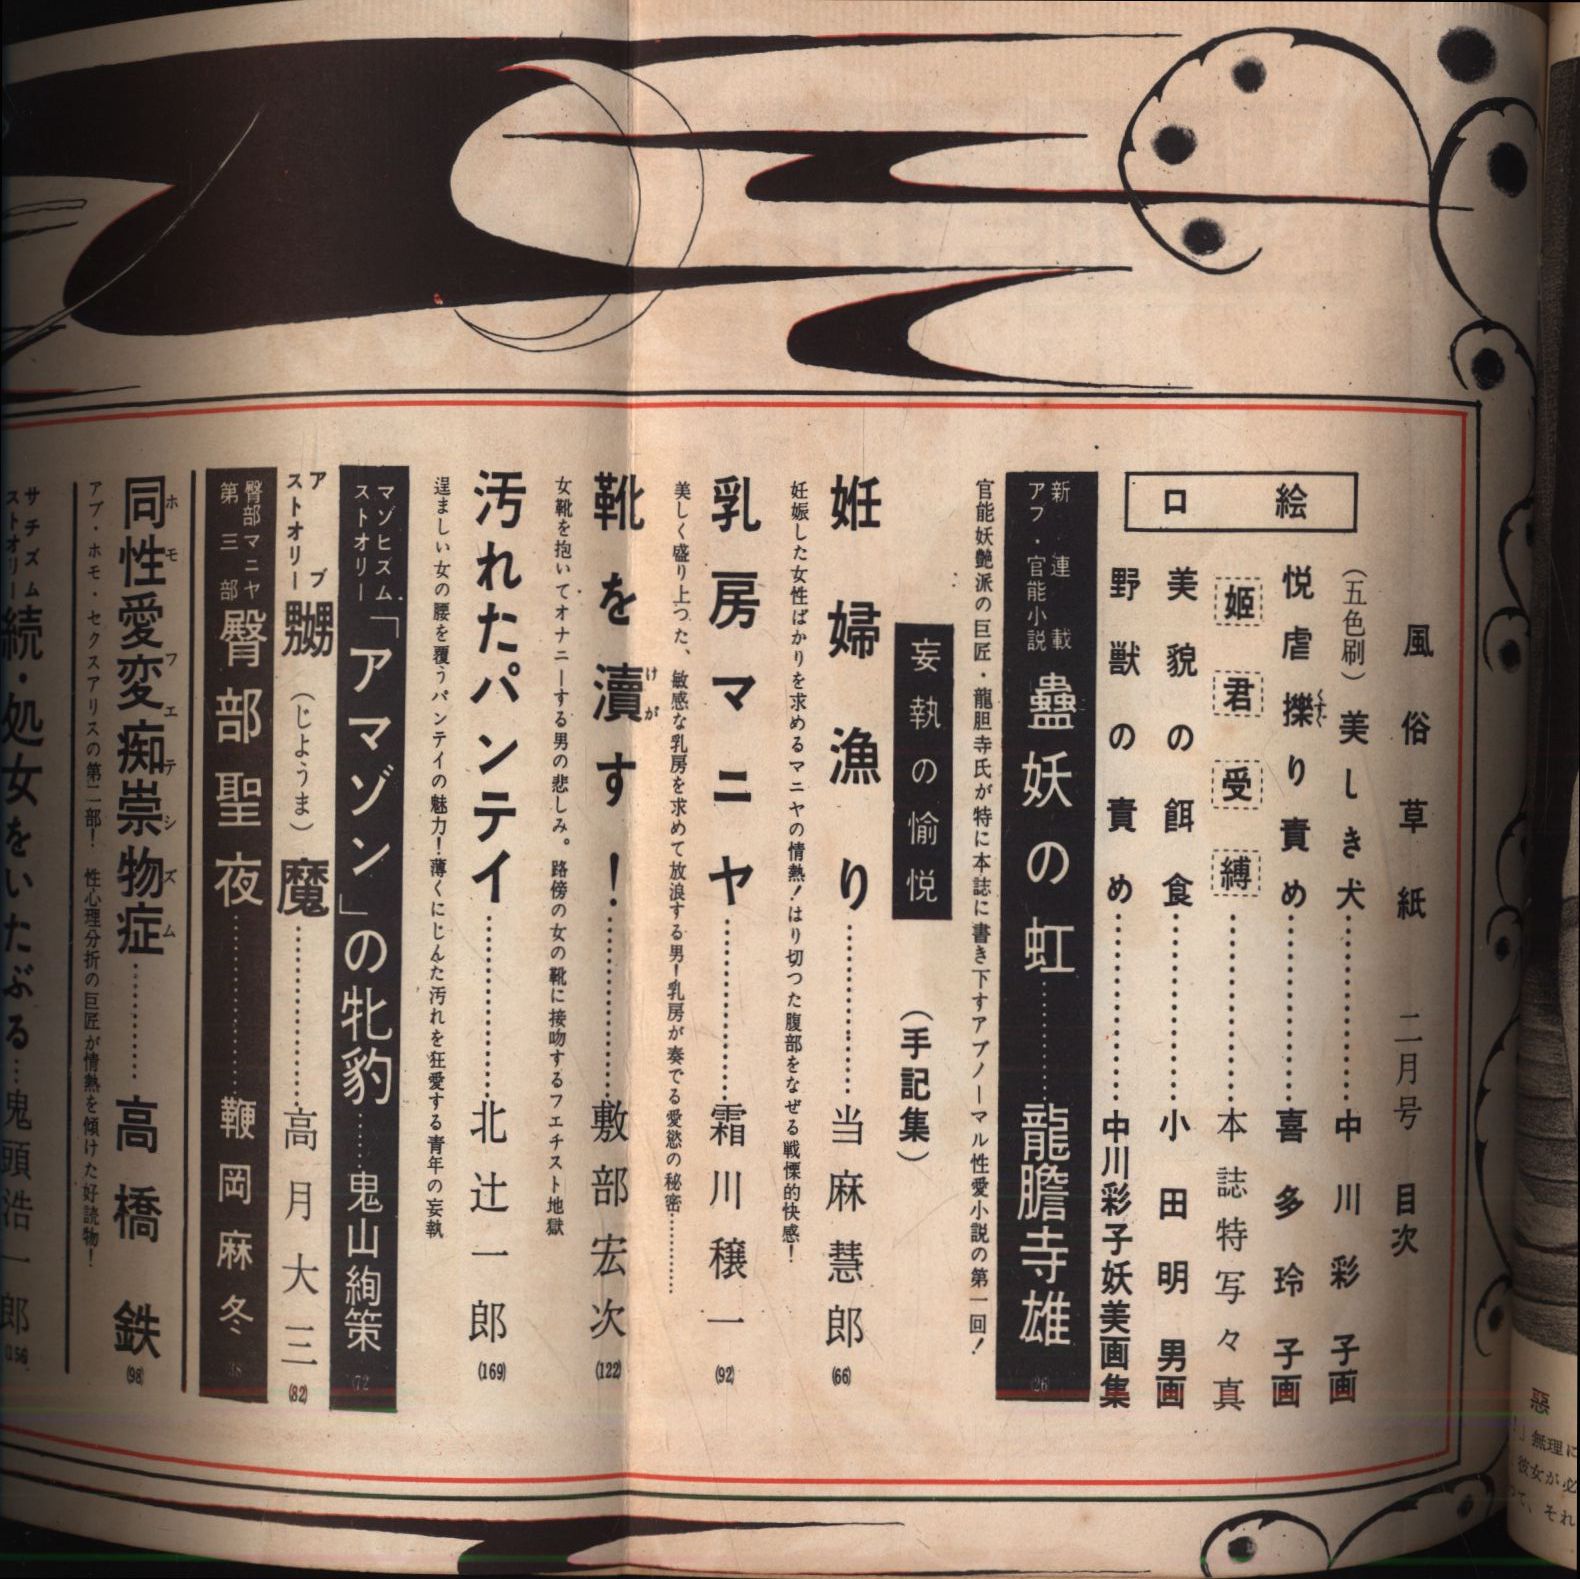 風俗草紙 二月号 目次
口絵
（五色刷）美しき犬……中川彩子画
悦虐擽り責め……喜多玲子画
くすぐ
姫君受縛……本誌特写々真
美貌の餌食……小田明男画
野獣の責め……中川彩子妖美画集
新連載
アブ・官能小説
蠱妖の虹……龍膽寺雄(26)
官能妖艶派の巨匠・龍胆寺氏が特に本誌に書き下すアブノーマル性愛小説の第一回！
妄執の愉悦（手記集）
妊婦漁り……当麻慧郎(66)
妊娠した女性ばかりを求めるマニヤの情熱！はり切つた腹部をなぜる戦慄的快感！
乳房マニヤ……霜川穣一(92)
美しく盛り上つた、敏感な乳房を求めて放浪する男！乳房が奏でる愛慾の秘密……
靴を瀆す！……敷部宏次(122)
けが
女靴を抱いてオナニーする男の悲しみ。路傍の女の靴に接吻するフエチスト地獄
汚れたパンテイ……北辻一郎(169)
逞ましい女の腰を覆うパンテイの魅力！薄くにじんた汚れを狂愛する青年の妄執
マゾヒズム
ストオリー
「アマゾン」の牝豹……鬼山絢策(72)
アブ
ストオリー
嬲（じようま）魔……高月大三(82)
臀部マニヤ
第三部
臀部聖夜……鞭岡麻冬(38)
同性愛変痴崇物症……高橋鉄(98)
ホモフエテシズム
アブ・ホモ・セクスアリスの第二部！ 性心理分折の巨匠が情熱を傾けた好読物！
サチズム
ストオリー
続・処女をいたぶる…鬼頭浩一郎(156)
悪
」無理に
彼女が必
て、それ